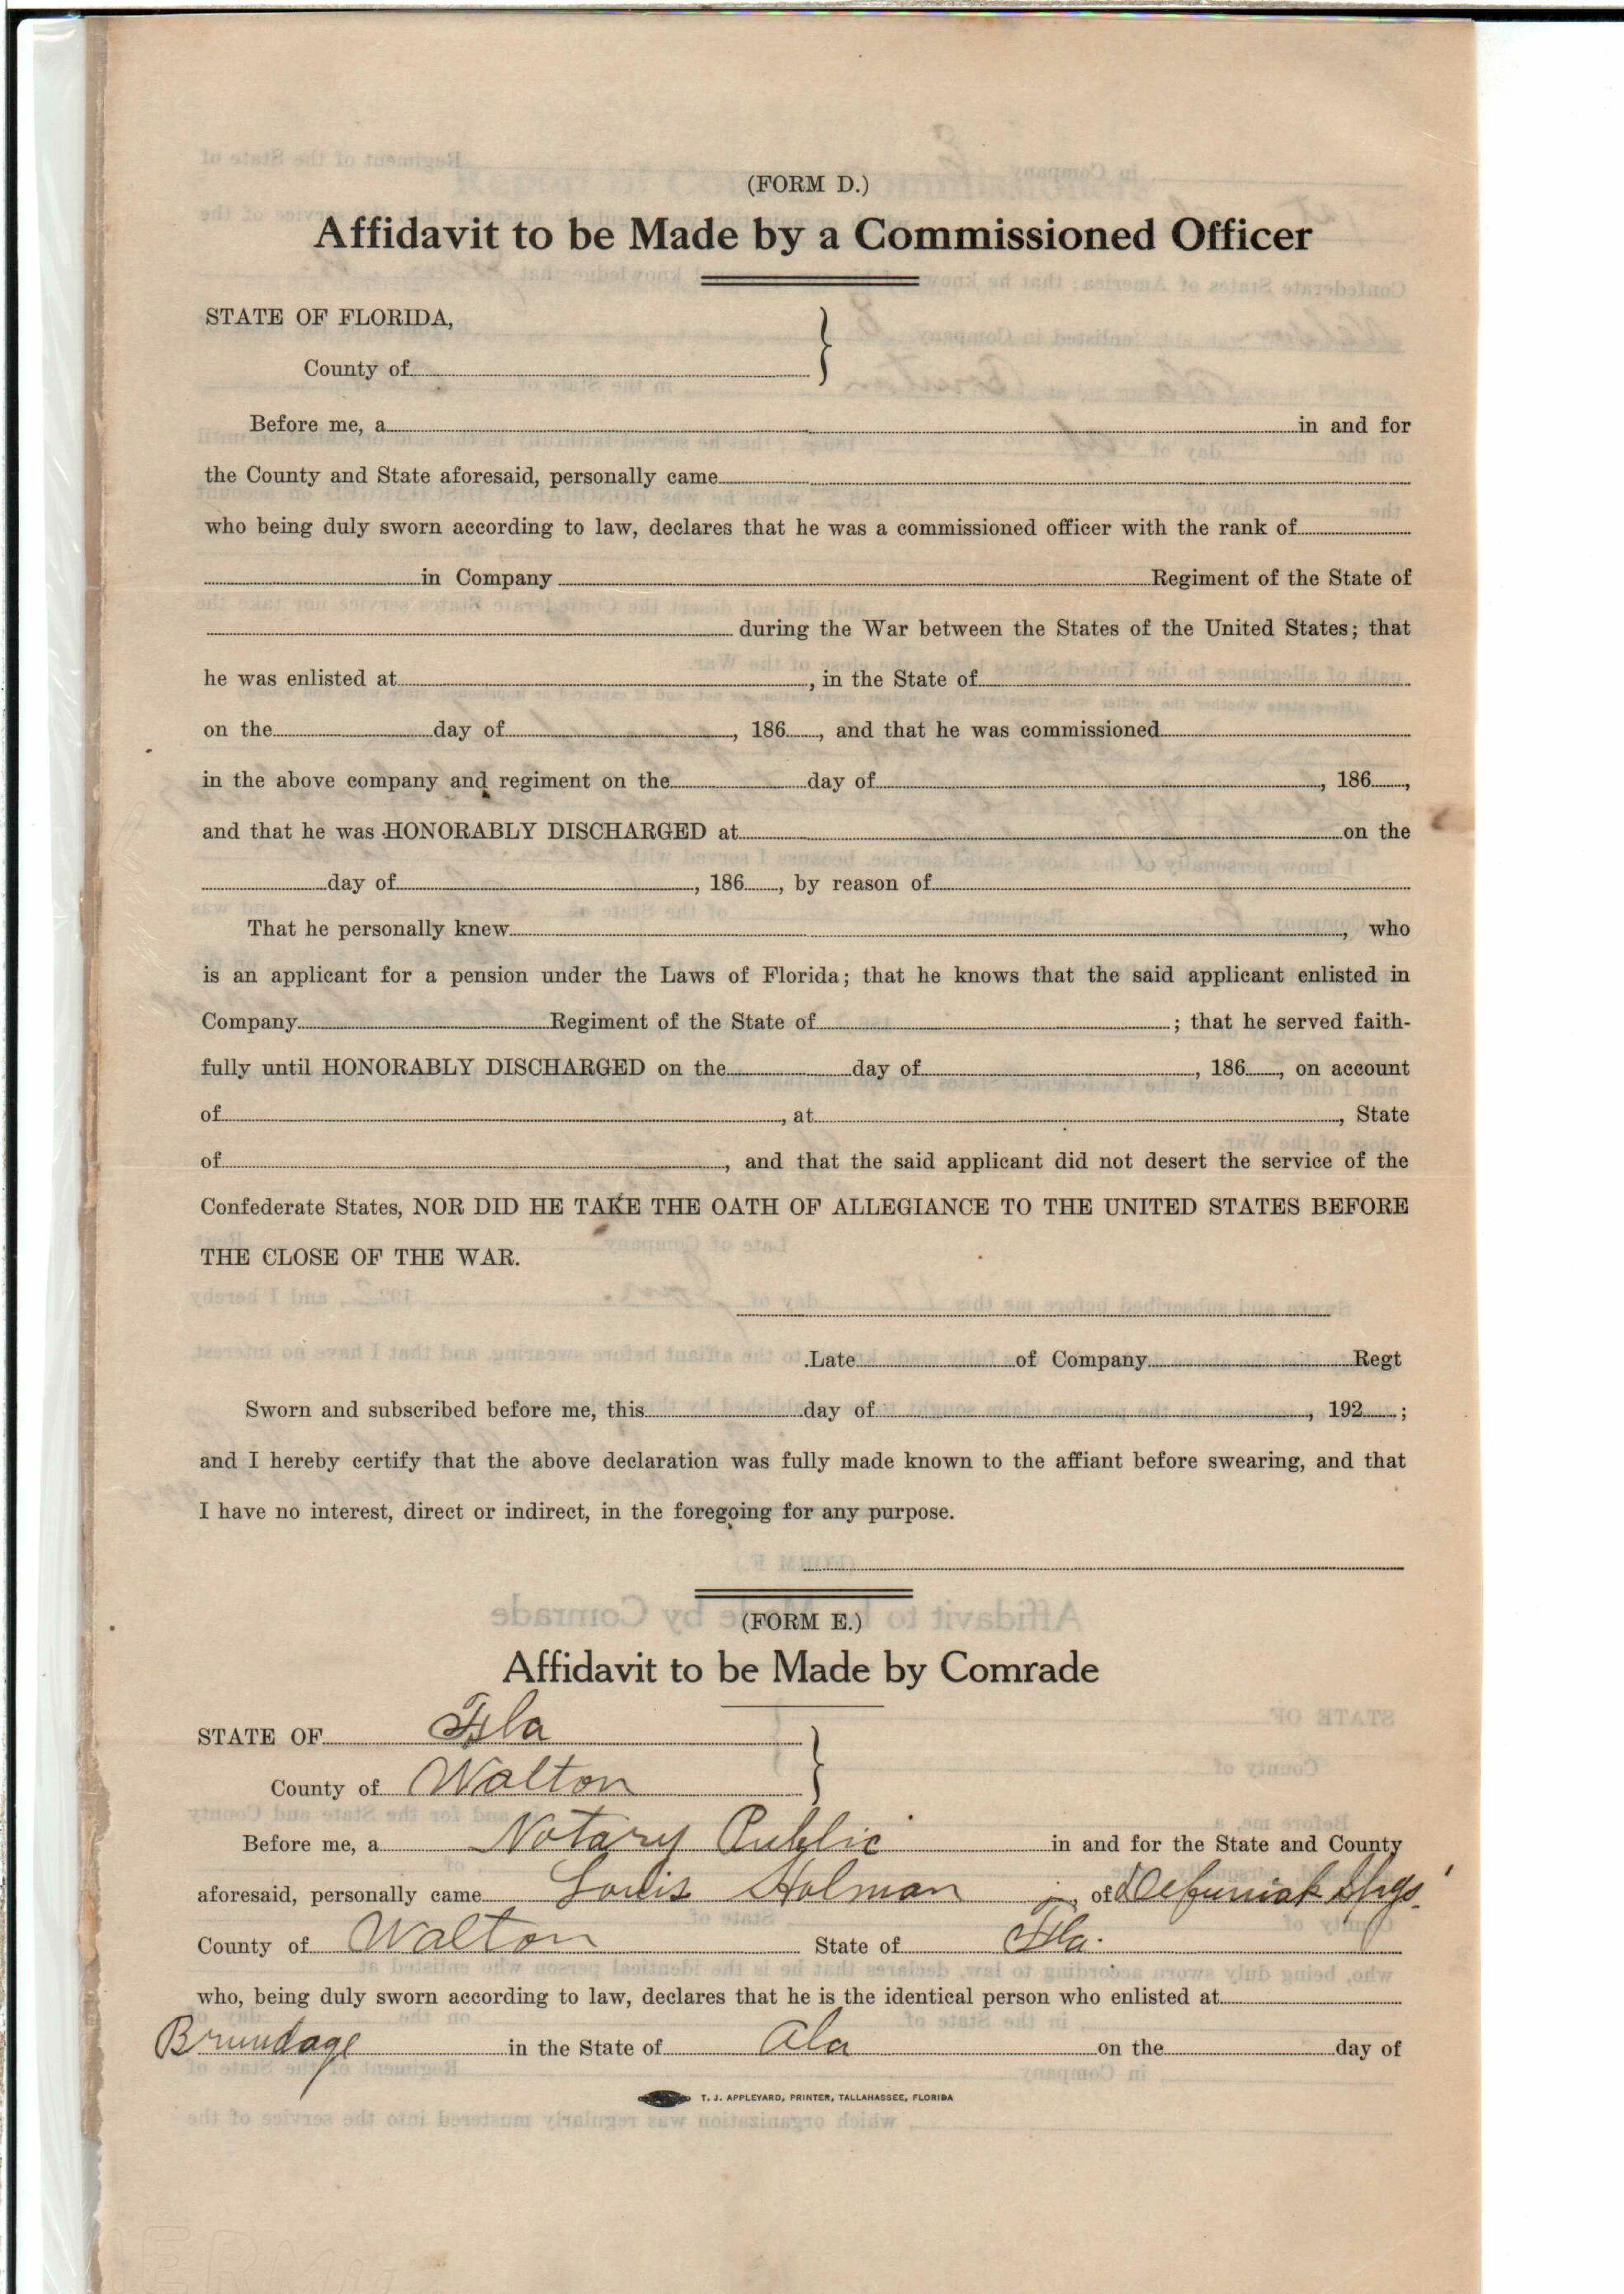 (FORM D.)
Affidavit to be Made by a Commissioned Officer
STATE OF FLORIDA,
County of
Before me, a in and for
the County and State aforesaid, personally came
who being duly sworn according to law, declares that he was a commissioned officer with the rank of
in Company Regiment of the State of
during the War between the States of the United States; that
he was enlisted at , in the State of
on the day of , 186 , and that he was commissioned
in the above company and regiment on the day of , 186 ,
and that he was HONORABLY DISCHARGED at on the
day of , 186 , by reason of
That he personally knew , who
is an applicant for a pension under the Laws of Florida; that he knows that the said applicant enlisted in
Company Regiment of the State of ; that he served faith-
fully until HONORABLY DISCHARGED on the day of , 186 , on account
of , at , State
of , and that the said applicant did not desert the service of the
Confederate States, NOR DID HE TAKE THE OATH OF ALLEGIANCE TO THE UNITED STATES BEFORE
THE CLOSE OF THE WAR.
Late of Company Regt
Sworn and subscribed before me, this day of , 192 ;
and I hereby certify that the above declaration was fully made known to the affiant before swearing, and that
I have no interest, direct or indirect, in the foregoing for any purpose.
(FORM E.)
Affidavit to be Made by Comrade
STATE OF Fla
County of Walton
Before me, a Notary Public in and for the State and County
aforesaid, personally came Louis Holman , of Defuniak Spgs.
County of Walton State of Fla.
who, being duly sworn according to law, declares that he is the identical person who enlisted at
Brundage in the State of Ala on the day of
T. J. APPLEYARD, PRINTER, TALLAHASSEE, FLORIDA